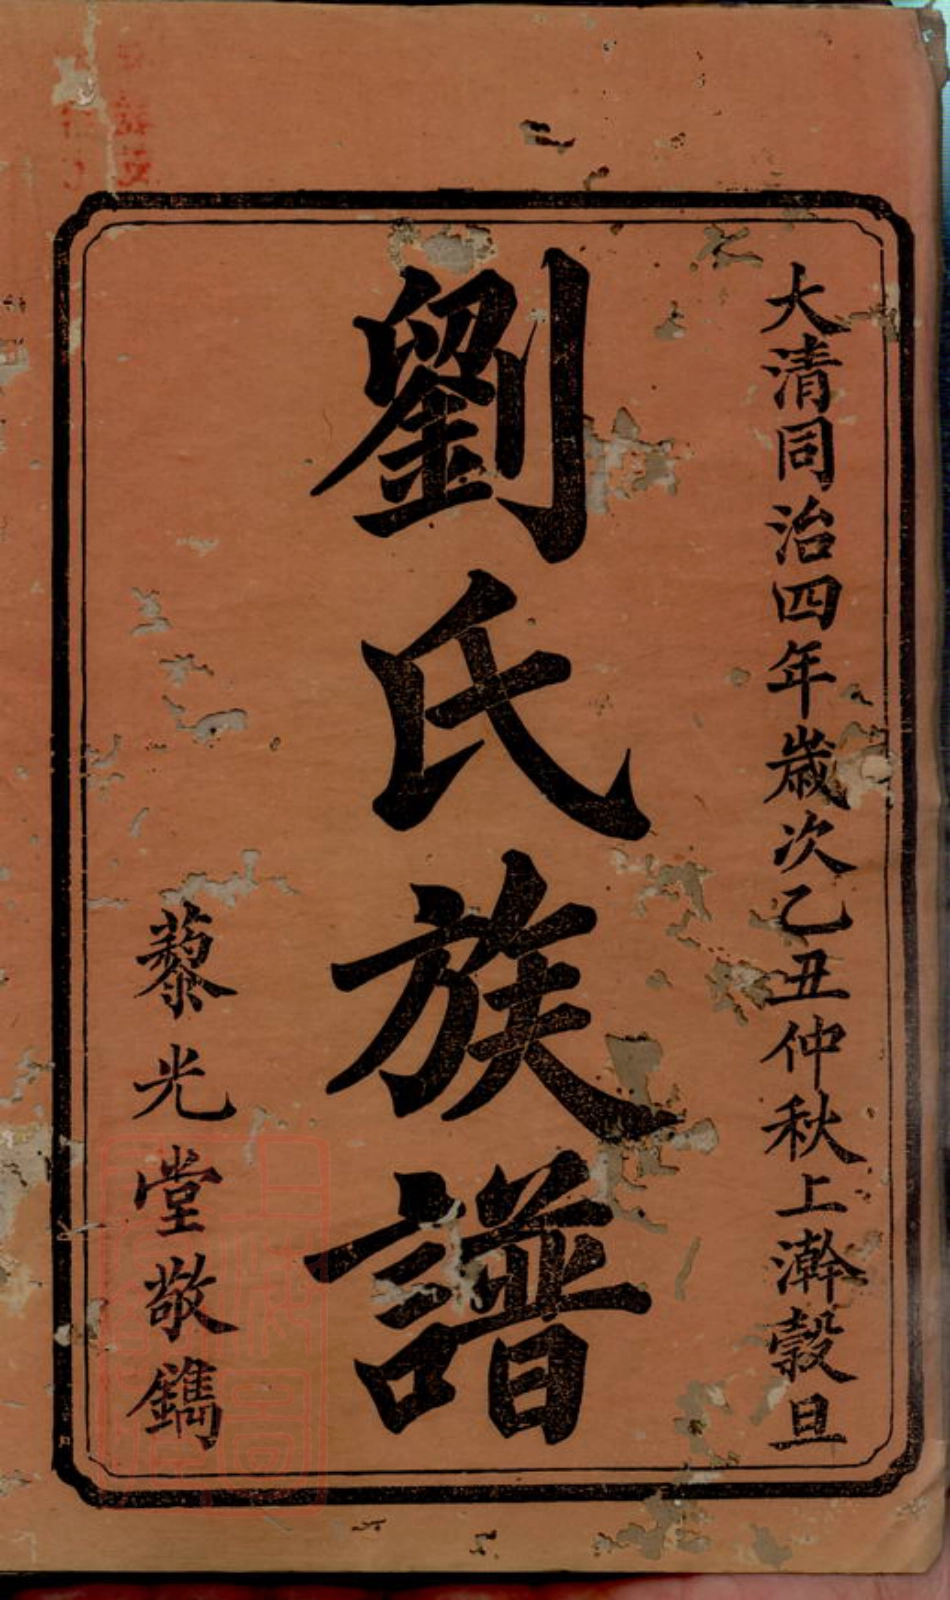 大清同治四年歲次乙丑仲秋上澣穀旦
劉氏族譜
藜光堂敬鐫